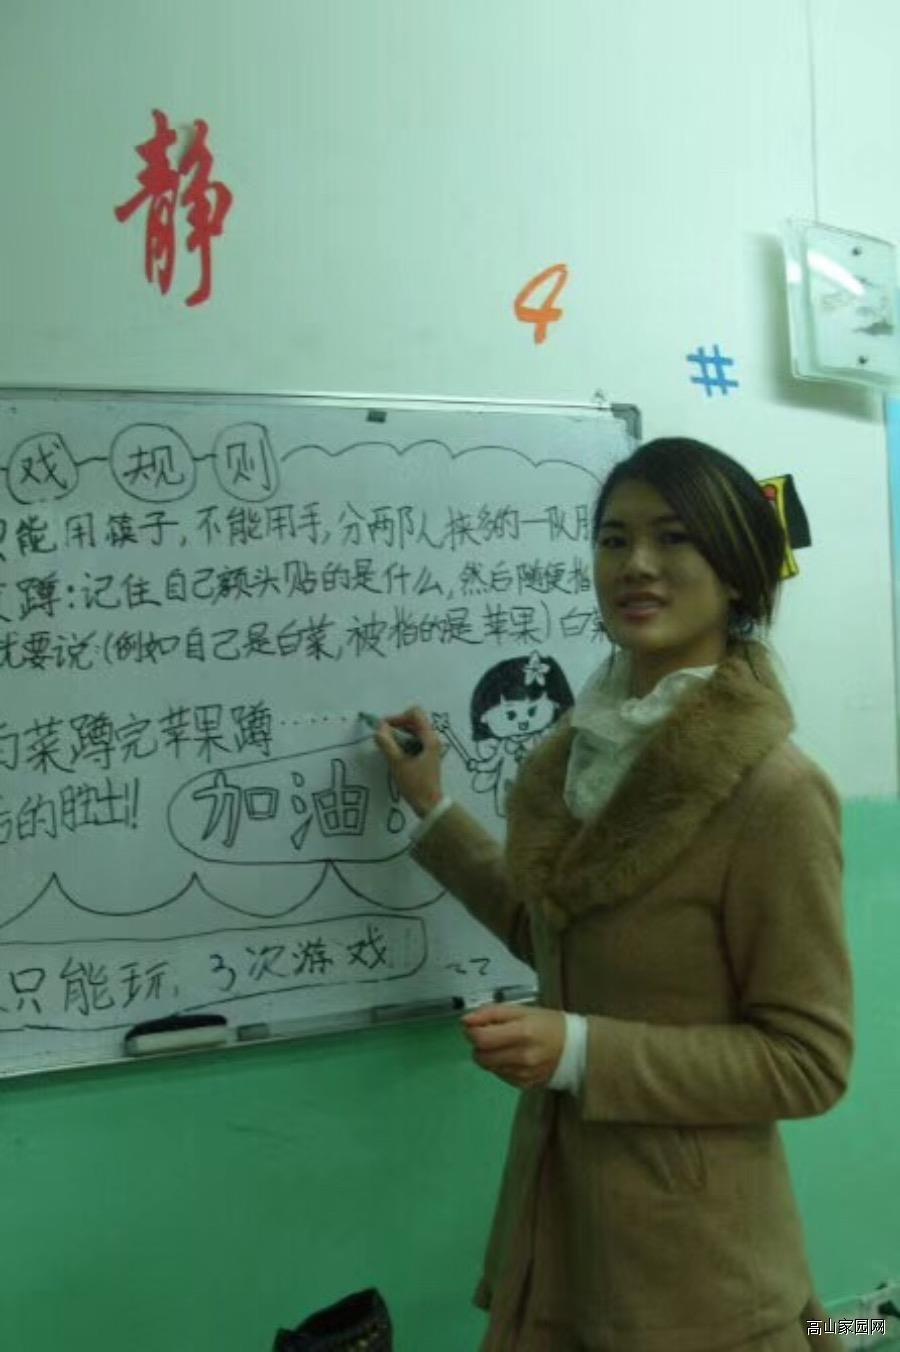 静
4
#
戏规则
只能用筷子,不能用手,分两队人挟多的一队胜
蹲:记住自己额头贴的是什么,然后随便指
就要说:(例如自己是白菜,被指的是苹果)白菜
白菜蹲完苹果蹲……
后的胜出!!
加油!
只能玩,3次游戏
高山家园网